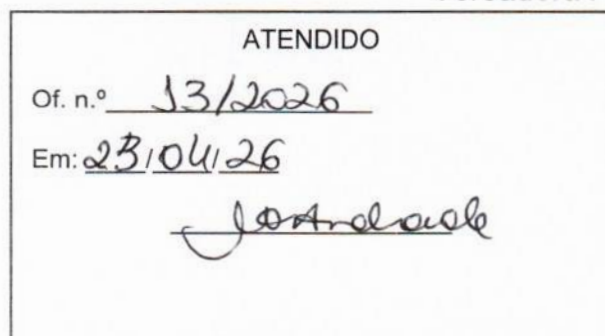 ATENDIDO
Of. n.º 13/2026
Em: 23/04/26